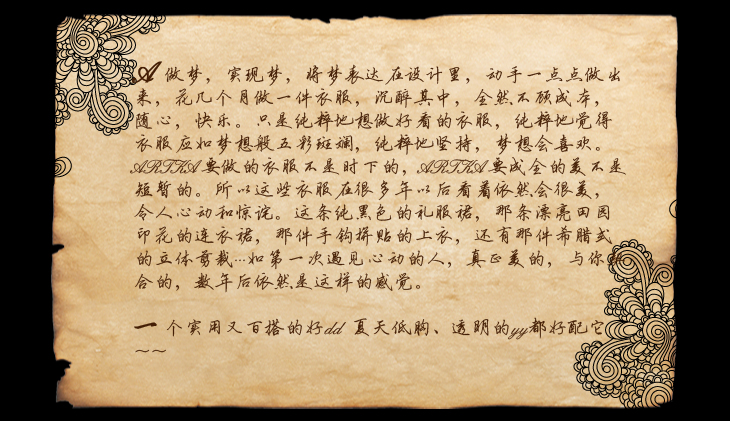 A 做梦，实现梦，将梦表达在设计里，动手一点点做出
来，花几个月做一件衣服，沉醉其中，全然不顾成本，
随心，快乐。只是纯粹地想做好看的衣服，纯粹地觉得
衣服应如梦想般五彩斑斓，纯粹地坚持，梦想会喜欢。
ARTKA要做的衣服不是时下的，ARTKA要成全的美不是
短暂的。所以这些衣服在很多年以后看着依然会很美，
令人心动和惊诧。这条纯黑色的礼服裙，那条漂亮田园
印花的连衣裙，那件手钩拼贴的上衣，还有那件希腊式
的立体剪裁…如第一次遇见心动的人，真正美的，与你
合的，数年后依然是这样的感觉。
一个实用又百搭的好dd 夏天低胸、透明的yy都好配它
~~